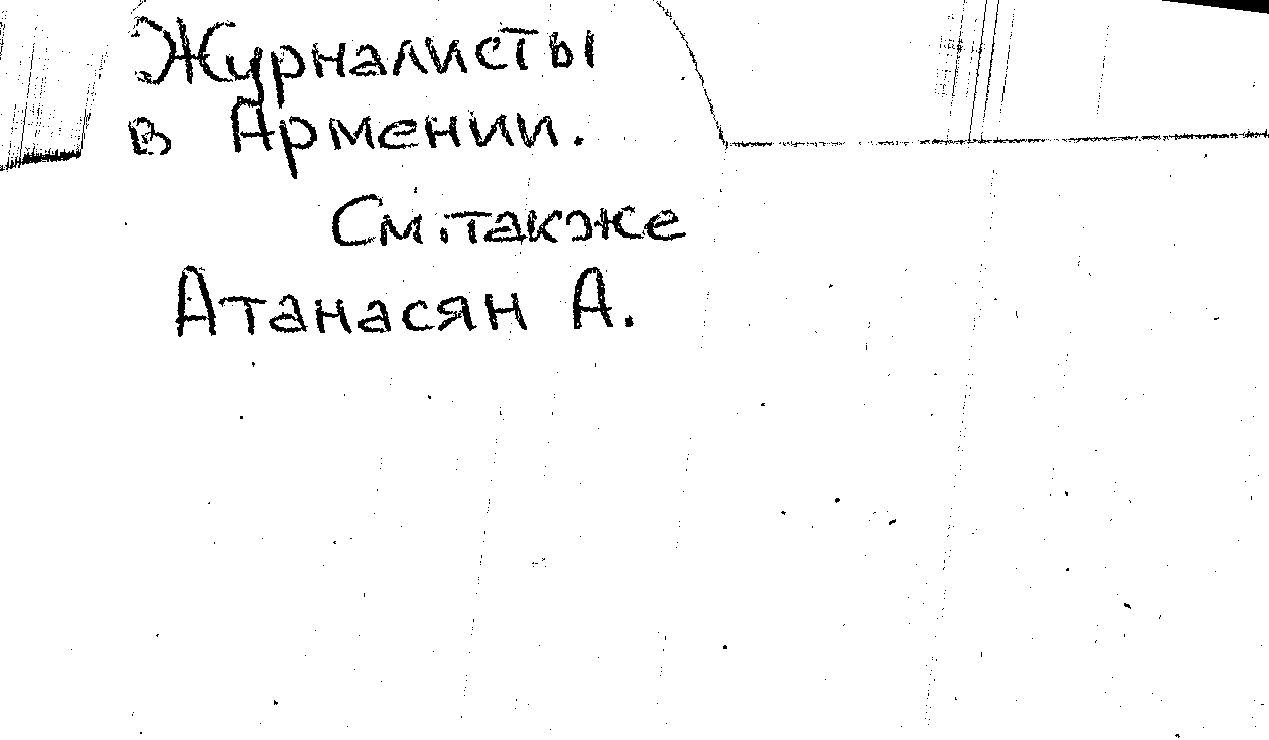 Журналисты
в Армении.
См. также
Атанасян А.